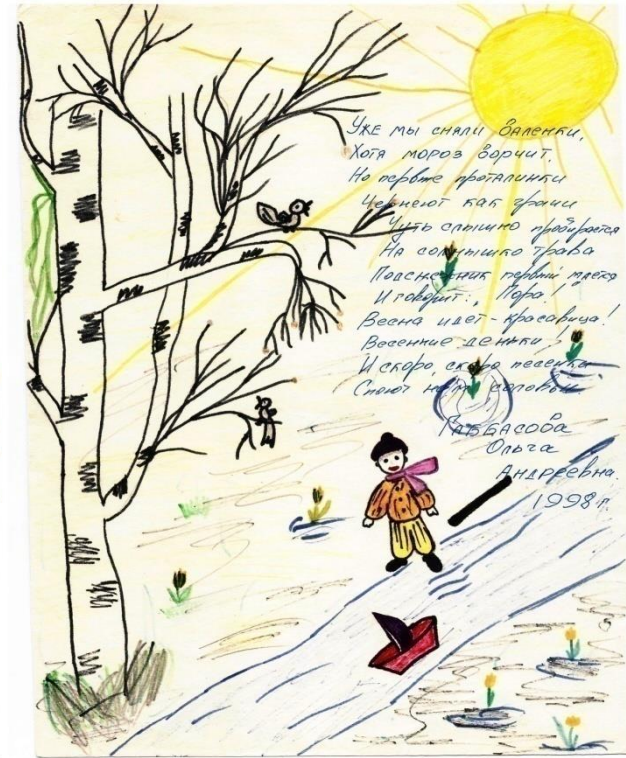 Уже мы сняли валенки,
Хотя мороз ворчит.
Но первые проталинки
Чернеют как грачи
Чуть слышно пробирается
На солнышко трава
Подснежник первый
И говорит: „Пора!"
Весна идет - красавица!
Весенние деньки!
И скоро, скоро песенки
Споют нам соловьи
Габбасова
Ольга
Андреевна.
1998 г.